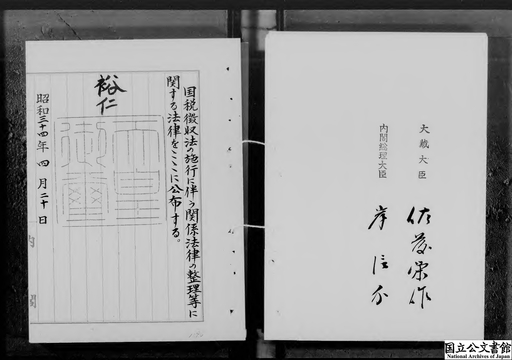 国税徴収法の施行に伴う関係法律の整理等に
関する法律をここに公布する。
裕仁
天皇
御璽
昭和三十四年四月二十日
大蔵大臣 佐藤栄作
内閣総理大臣 岸信介
国立公文書館
National Archives of Japan